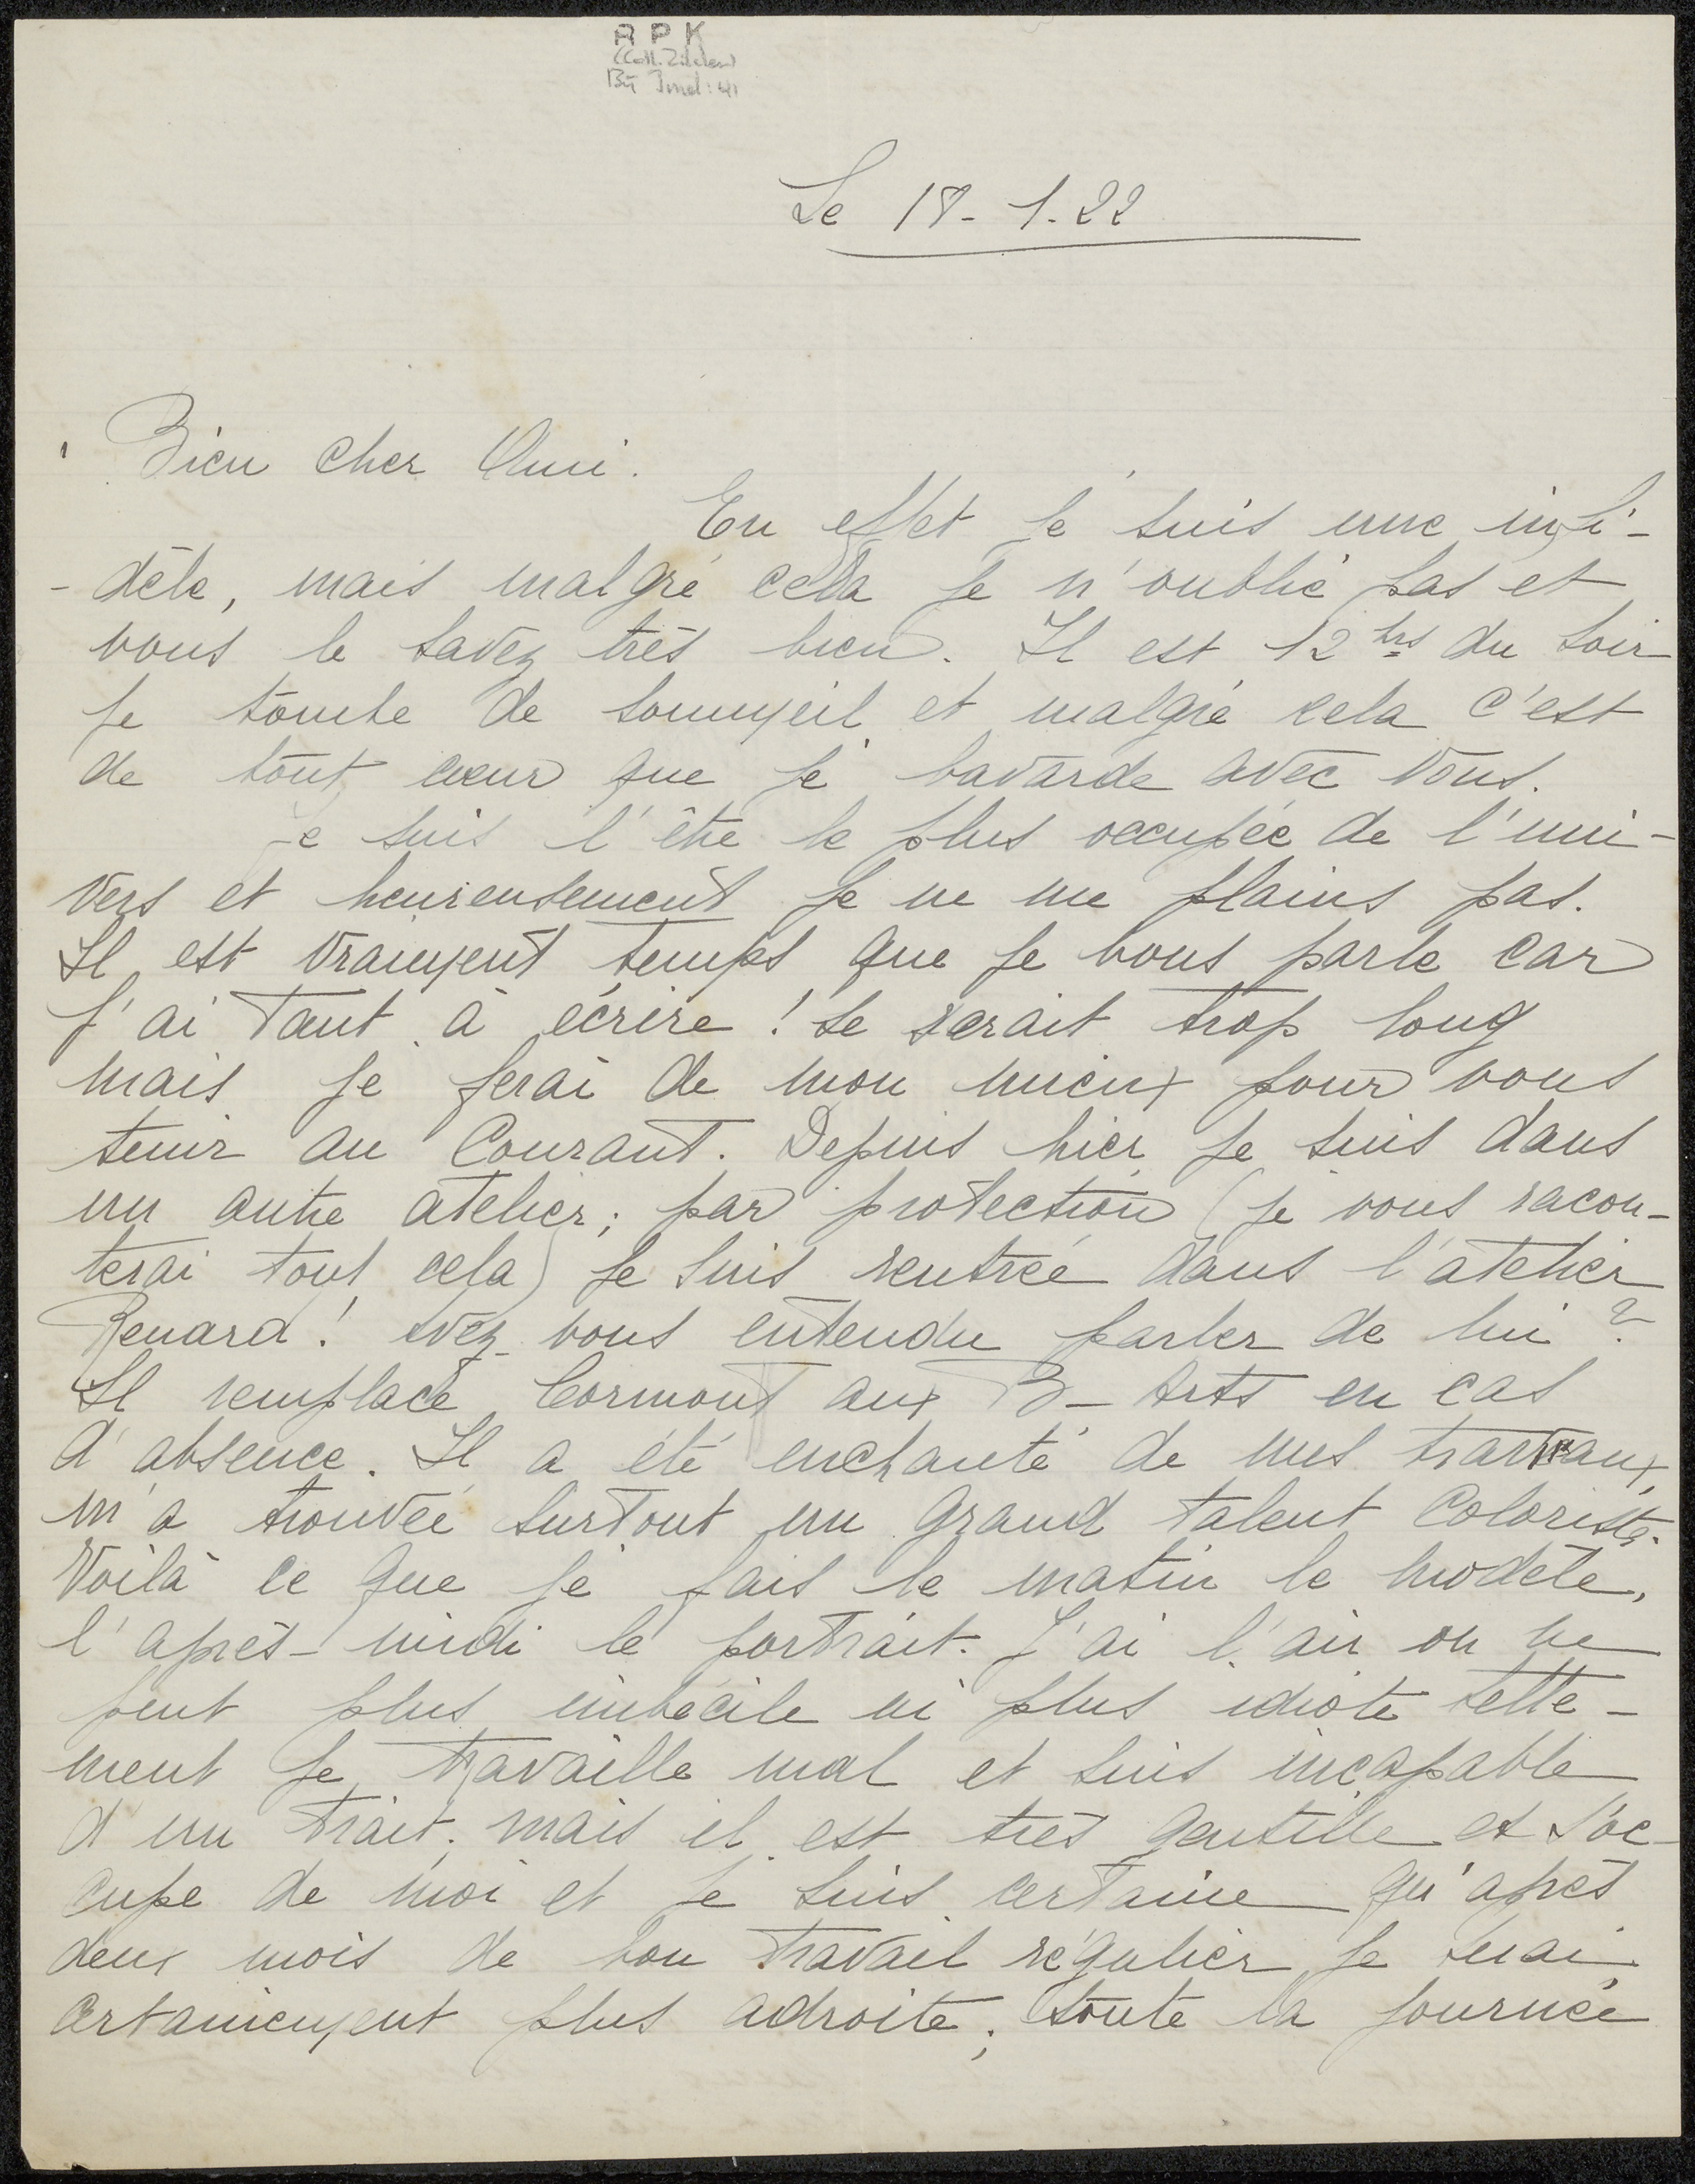 R P K
(Coll. Zilcken)
Le 18 - 1. 22
Bien cher Ami.
En effet je suis une infi-
- dèle, mais malgré cela je n'oublie pas et
vous le savez très bien. Il est 12 hrs du soir
je tombe de sommeil et malgré cela c'est
de tout cœur que je bavarde avec vous.
Je suis l'être le plus occupée de l'uni-
vers et heureusement je ne me plains pas.
Il est vraiment temps que je vous parle car
j'ai tant à écrire ! se serait trop long
mais je ferai de mon mieux pour vous
tenir au Courant. Depuis hier je suis dans
un autre atelier ; par protection (je vous racon-
terai tout cela) je suis rentrée dans l'atelier
Renard ! avez-vous entendu parler de lui ?
Il remplace Cormont aux B - Arts en cas
d'absence. Il a été enchanté de mes travaux,
m'a trouvée surtout un grand talent Coloriste.
Voilà ce que je fais le matin le modèle,
l'après-midi le portrait. J'ai l'air on ne
peut plus imbécile ni plus idiote telle-
ment je travaille mal et suis incapable
d'un trait ; mais il est très gentille et s'oc-
cupe de moi et je suis certaine qu'après
deux mois de bon travail régulier je serai
certainement plus adroite ; toute la journée